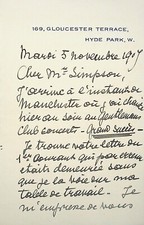 169, GLOUCESTER TERRACE,
HYDE PARK, W.
Mardi 5 novembre 1907
Cher Mr. Simpson,
J'arrive à l'instant de
Manchester où j'ai chanté
hier au soir au Gentlemens
Club concert. Grand succès.
Je trouve votre lettre du
1er courant qui par erreur
était demeurée sans
que je la voie sur ma
table de travail. Je
m'empresse de vous